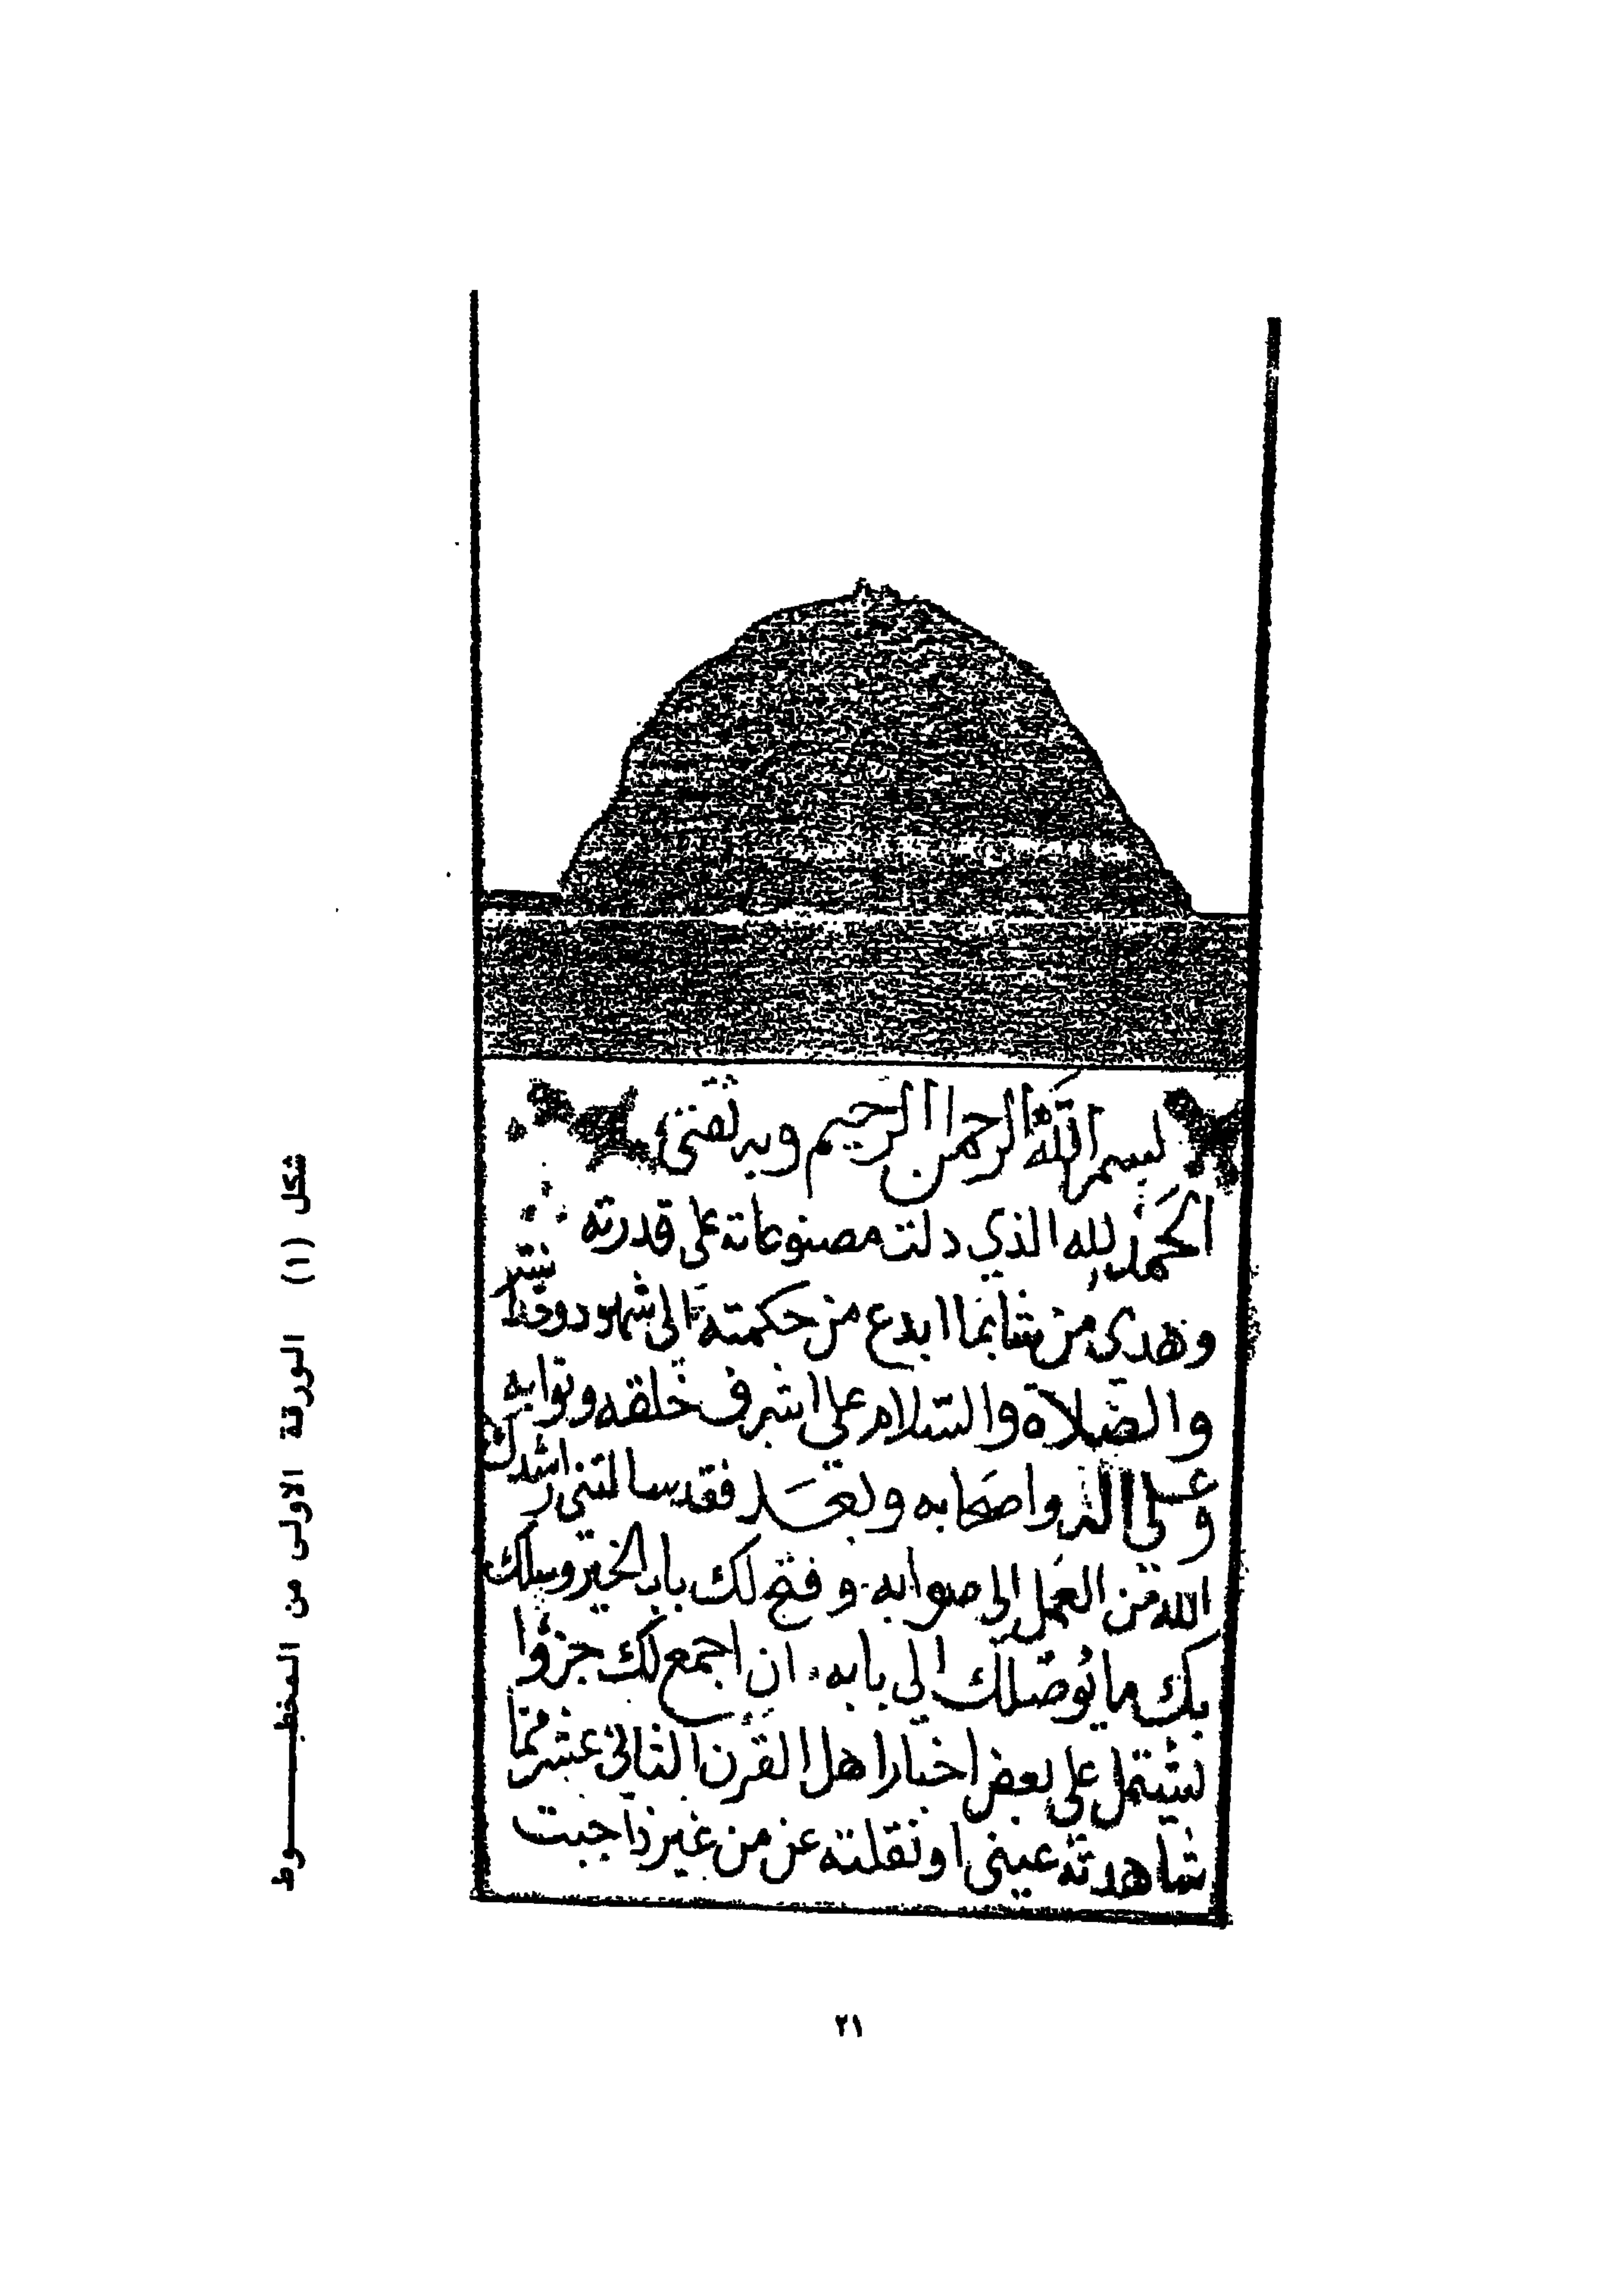 بسم الله الرحمن الرحيم وبه ثقتي
الحمد لله الذي دلت مصنوعاته على قدرته
وهدى من شا بما ابدع من حكمته الى شهود وحدا نيته
والصلاة والسلام على اشرف خلقه ونوابه
وعلى اله واصحابه وبعد فقد سالتني ارشدك
الله من العمل الى صوابه وفتح لك باب الخير وسلك
بك ما يوصلك الى بابه ان اجمع لك جزوا
يشتمل على بعض اخبار اهل القرن الثاني عشر مما
شاهدته عيني او نقلته عن من غير ذا جبت
شكل (١) الورقة الاولى من المخطـــــوط
٢١